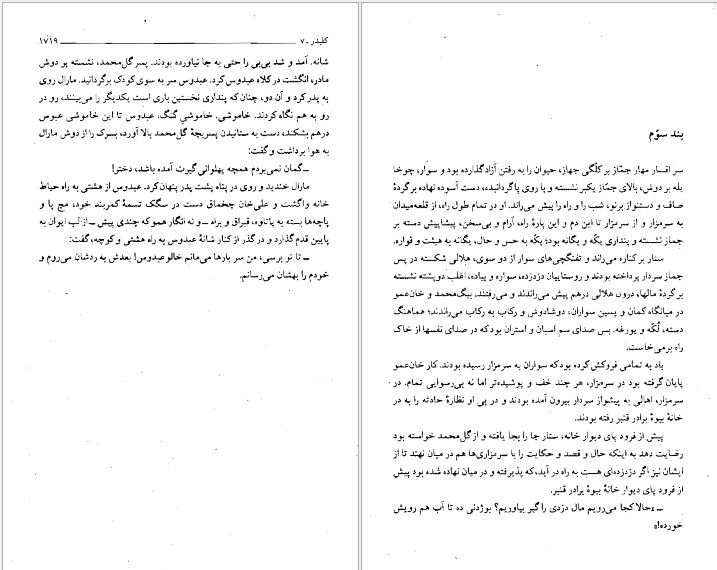 کلیدر ـ ۷ ۱۷۱۹
شانه. آمد و شد بی‌بی را حتی به جا نیاورده بودند. پسر گل‌محمد، نشسته بر دوش
مادر، انگشت در کلاه عبدوس کرد. عبدوس سر به سوی کودک برگردانید. مارال روی
به پدر کرد و آن دو، چنان که پنداری نخستین باری است یکدیگر را می‌بینند، رو در
رو به هم نگاه کردند. خاموشی. خاموشیِ گنگ. عبدوس تا این خاموشی عبوس
درهم بشکند، دست به ستانیدن پسربچهٔ گل‌محمد بالا آورد، پسرک را از دوش مارال
به هوا برداشت و گفت:
ـ گمان نمی‌بردم همچه پهلوانی گیرت آمده باشد، دختر!
مارال خندید و روی در پناه پشت پدر پنهان کرد. عبدوس از هشتی به راه حیاط
خانه واگشت و علی‌خان چخماق دست در سگک تسمهٔ کمربند خود، مچ پا و
پاچه‌ها بسته به پاتاوه، قبراق و براه ـ و نه انگار همو که چندی پیش ـ از لب ایوان به
پایین قدم گذارد و در گذر از کنار شانهٔ عبدوس به راه هشتی و کوچه، گفت:
ـ تا نو برسی، من سر بارها می‌مانم خالو عبدوس! بعدش به ردشان می‌روم و
خودم را بهشان می‌رسانم.
بند سوّم
سر افسار مهار جمّاز بر کلّگی جهاز، حیوان را به رفتن آزاد گذارده بود و سوار، چوخا
یله بر دوش، بالای جمّاز یکبر نشسته و پا روی پا گردانیده، دست آسوده نهاده بر گردهٔ
صاف و دستنواز برنو، شب را و راه را پیش می‌راند. او در تمام طول راه، از قلعه‌میدان
به سرمزار و از سرمزار تا این دم و این پارهٔ راه، آرام و بی‌سخن، پیشاپیش دسته بر
جماز نشسته و پنداری یکّه و یگانه بود؛ یکّه به حس و حال، یگانه به هیئت و قواره.
ستار بر کناره می‌راند و تفنگچی‌های سوار از دو سوی، هلالی شکسته در پس
جماز سردار پرداخته بودند و روستاییان دزدزده، سواره و پیاده، اغلب دوپشته نشسته
بر گردهٔ مالها، درون هلالی درهم پیش می‌راندند و می‌رفتند. بیگ‌محمد و خان‌عمو
در میانگاه کمان و پسین سواران، دوشادوش و رکاب به رکاب می‌راندند؛ هماهنگ
دسته، لُکّه و یورغه. بس صدای سم اسبان و استران بود که در صدای نفسها از خاک
راه برمی‌خاست.
باد به تمامی فروکش کرده بود که سواران به سرمزار رسیده بودند. کار خان‌عمو
پایان گرفته بود در سرمزار، هر چند خف و پوشیده‌تر اما نه بی‌رسوایی تمام. در
سرمزار، اهالی به پیشواز سردار بیرون آمده بودند و در پی او نظارهٔ حادثه را به در
خانهٔ بیوهٔ برادر قنبر رفته بودند.
پیش از فرود پای دیوار خانه، ستار جا را بجا یافته و از گل‌محمد خواسته بود
رضایت دهد به اینکه حال و قصد و حکایت را با سرمزاری‌ها هم در میان نهند تا از
ایشان نیز اگر دزدزده‌ای هست به راه در آید، که پذیرفته و در میان نهاده شده بود پیش
از فرود پای دیوار خانهٔ بیوهٔ برادر قنبر.
ـ «حالا کجا می‌رویم مال دزدی را گیر بیاوریم؟ بوژدنی ده تا آب هم رویش
خورده!»